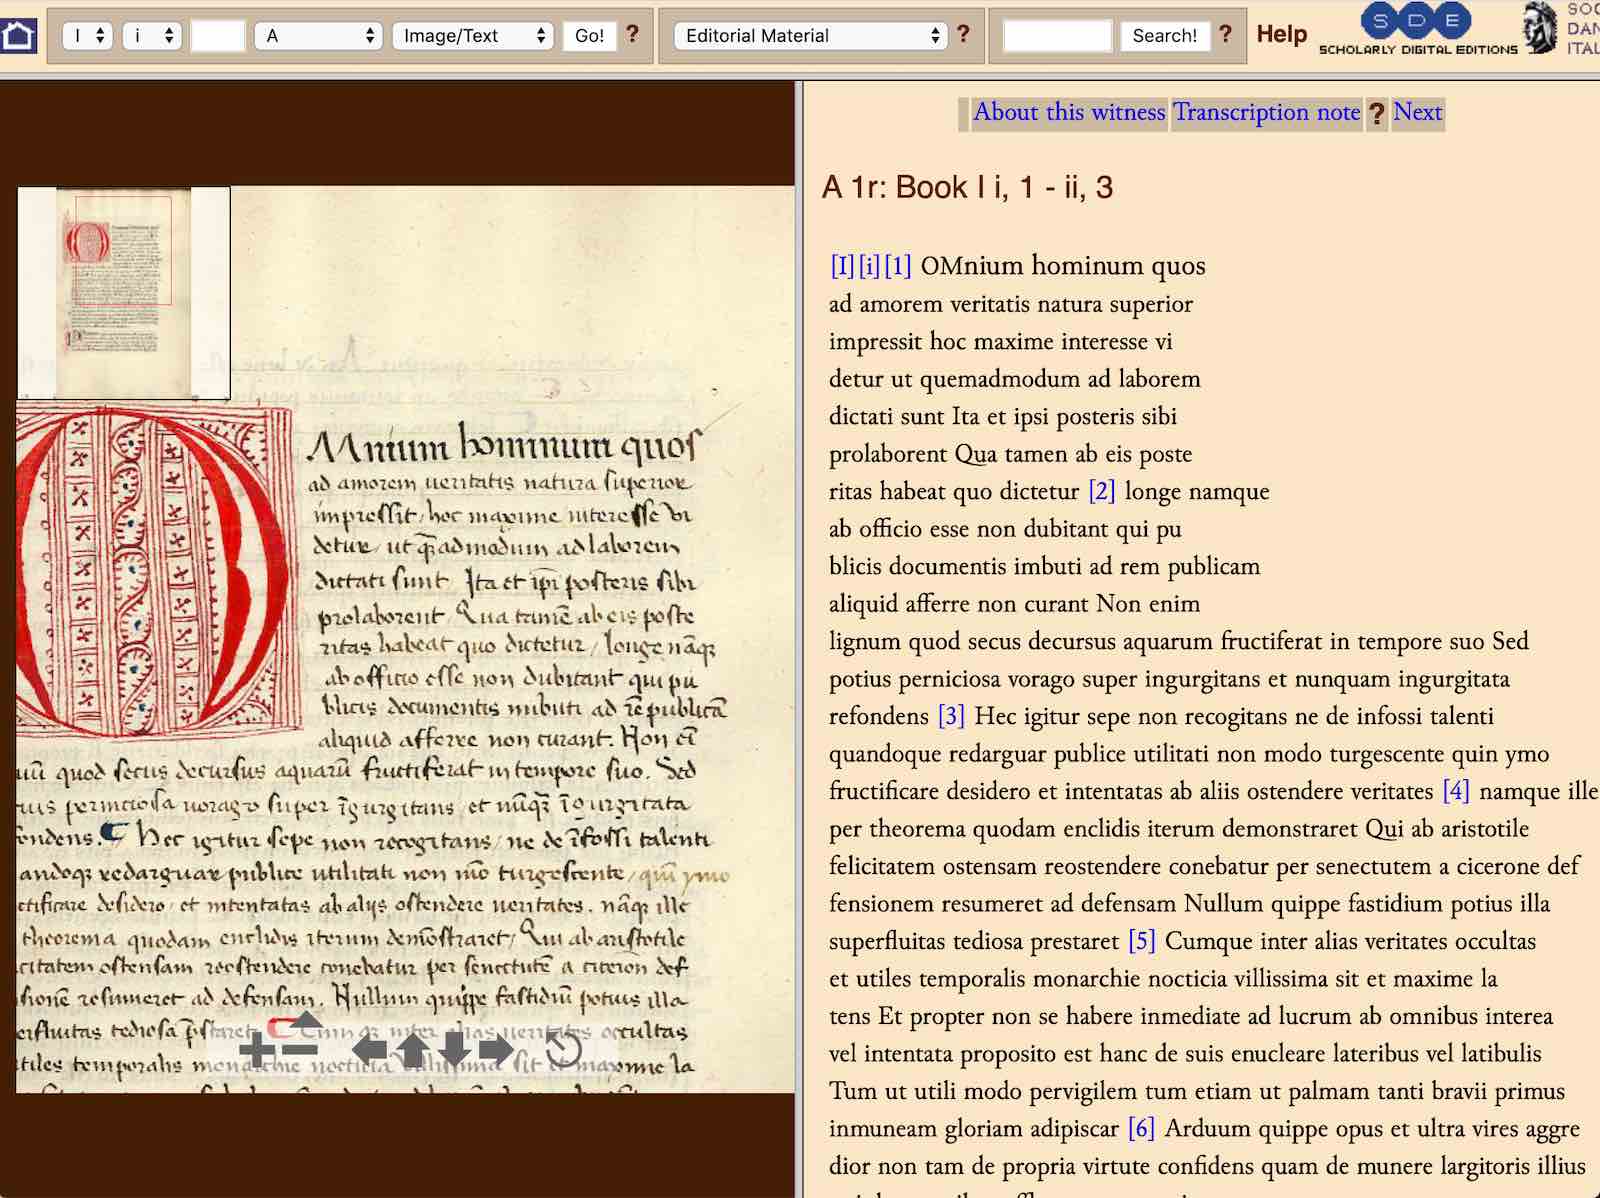 I
i
A
Image/Text
Go!
?
Editorial Material
?
Search!
?
Help
SDE
SCHOLARLY DIGITAL EDITIONS
SOC
DAN
ITAL
Mnium hominum quos
ad amorem ueritatis natura superior
impressit / hoc maxime interesse vi
detur / ut q̄admodum ad laborem
dictati sunt Ita et ip̄i posteris sibi
prolaborent Qua tamē ab eis poste
ritas habeat quo dictetur / longe nāq;
ab officio esse non dubitant qui pu
blicis documentis imbuti ad rē publicā
aliquid afferre non curant. Non eī
quod secus decursus aquarū fructiferat in tempore suo. Sed
perniciosa uorago super īgurgitans et nūq̄ īgurgitata
fondens. ¶ Hec igitur sepe non recogitans / ne de īfossi talenti
andoq; redarguar publice utilitati non mō turgescente / quin ymo
ctificare desidero / et intentatas ab aliis ostendere ueritates. nāq; ille
theorema quodam enclidis iterum demōstraret / Qui ab aristotile
citatem ostensam reostendere conebatur per senectutē a ciceron def
sionē resumeret ad defensam. Nullum quippe fastidiū potius illa
erfluitas tediosa p̄staret ¶ Cumq; inter alias ueritates occultas
tiles temporalis monarchie nocticia villissima sit et maxime la
About this witness Transcription note ? Next
A 1r: Book I i, 1 - ii, 3
[I][i][1] OMnium hominum quos
ad amorem veritatis natura superior
impressit hoc maxime interesse vi
detur ut quemadmodum ad laborem
dictati sunt Ita et ipsi posteris sibi
prolaborent Qua tamen ab eis poste
ritas habeat quo dictetur [2] longe namque
ab officio esse non dubitant qui pu
blicis documentis imbuti ad rem publicam
aliquid afferre non curant Non enim
lignum quod secus decursus aquarum fructiferat in tempore suo Sed
potius perniciosa vorago super ingurgitans et nunquam ingurgitata
refondens [3] Hec igitur sepe non recogitans ne de infossi talenti
quandoque redarguar publice utilitati non modo turgescente quin ymo
fructificare desidero et intentatas ab aliis ostendere veritates [4] namque ille
per theorema quodam enclidis iterum demonstraret Qui ab aristotile
felicitatem ostensam reostendere conebatur per senectutem a cicerone def
fensionem resumeret ad defensam Nullum quippe fastidium potius illa
superfluitas tediosa prestaret [5] Cumque inter alias veritates occultas
et utiles temporalis monarchie nocticia villissima sit et maxime la
tens Et propter non se habere inmediate ad lucrum ab omnibus interea
vel intentata proposito est hanc de suis enucleare lateribus vel latibulis
Tum ut utili modo pervigilem tum etiam ut palmam tanti bravii primus
inmuneam gloriam adipiscar [6] Arduum quippe opus et ultra vires aggre
dior non tam de propria virtute confidens quam de munere largitoris illius